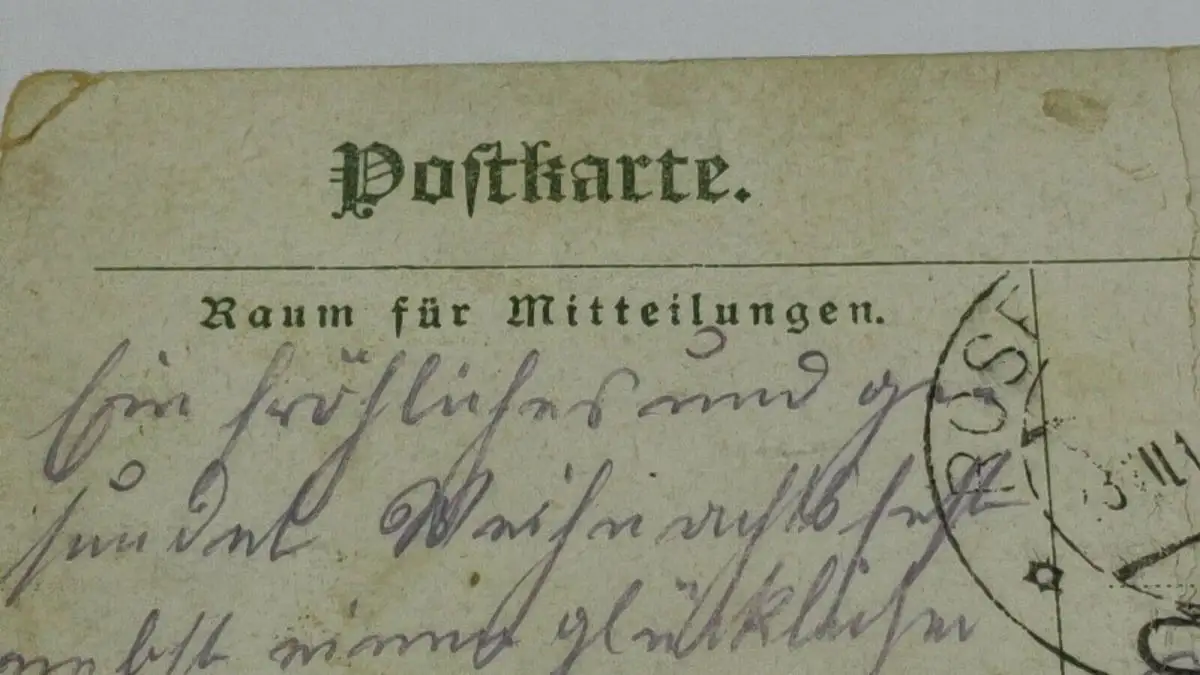 Postkarte.
Raum für Mitteilungen.
Ein fröhliches und ge-
sundes Weihnachtsfest
nebst einen glücklichen